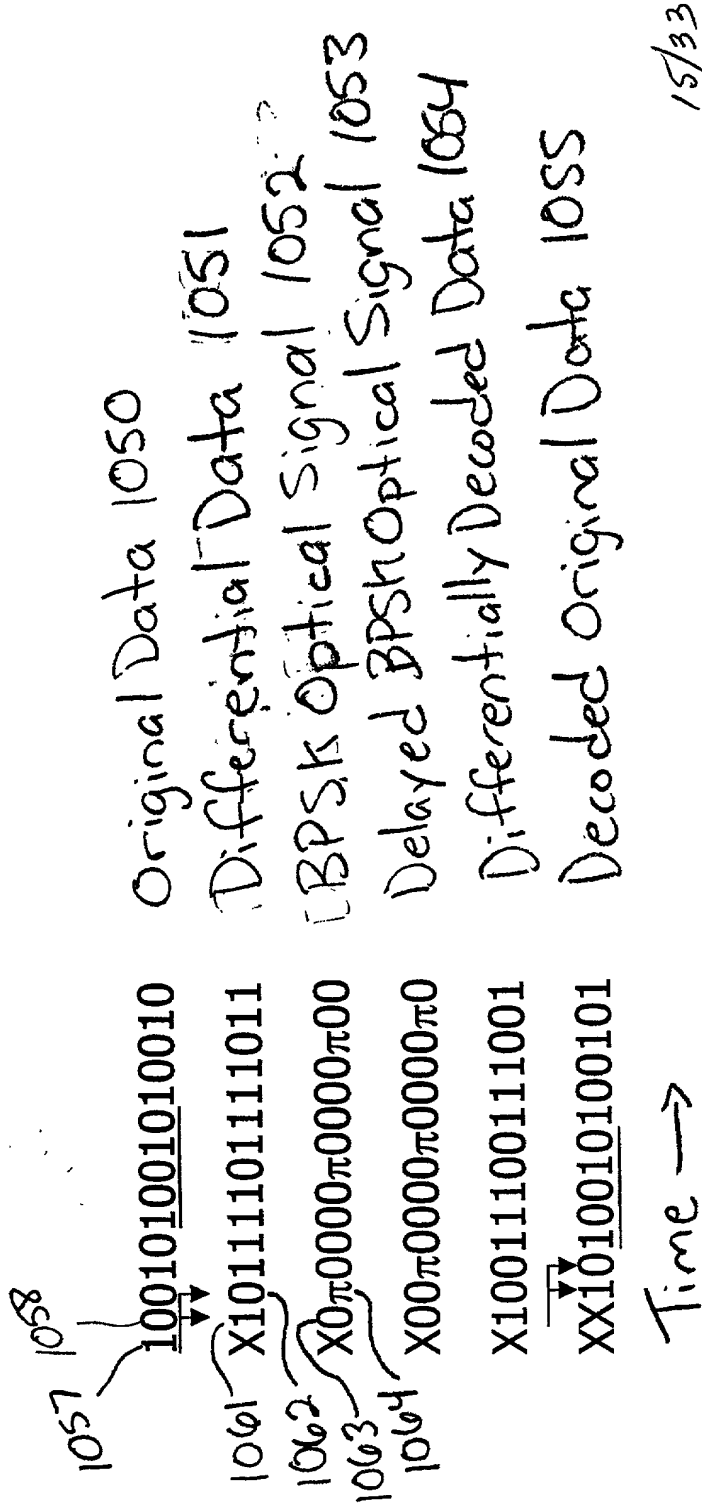 1057 1058
100101001010010 Original Data 1050
1061 X10111101111011 Differential Data 1051
1062 1063 X0π0000π0000π00 BPSK Optical Signal 1052
1064 X00π0000π0000π0 Delayed BPSK Optical Signal 1053
X10011100111001 Differentially Decoded Data 1054
XX1010010100101 Decoded Original Data 1055
Time →
15/33